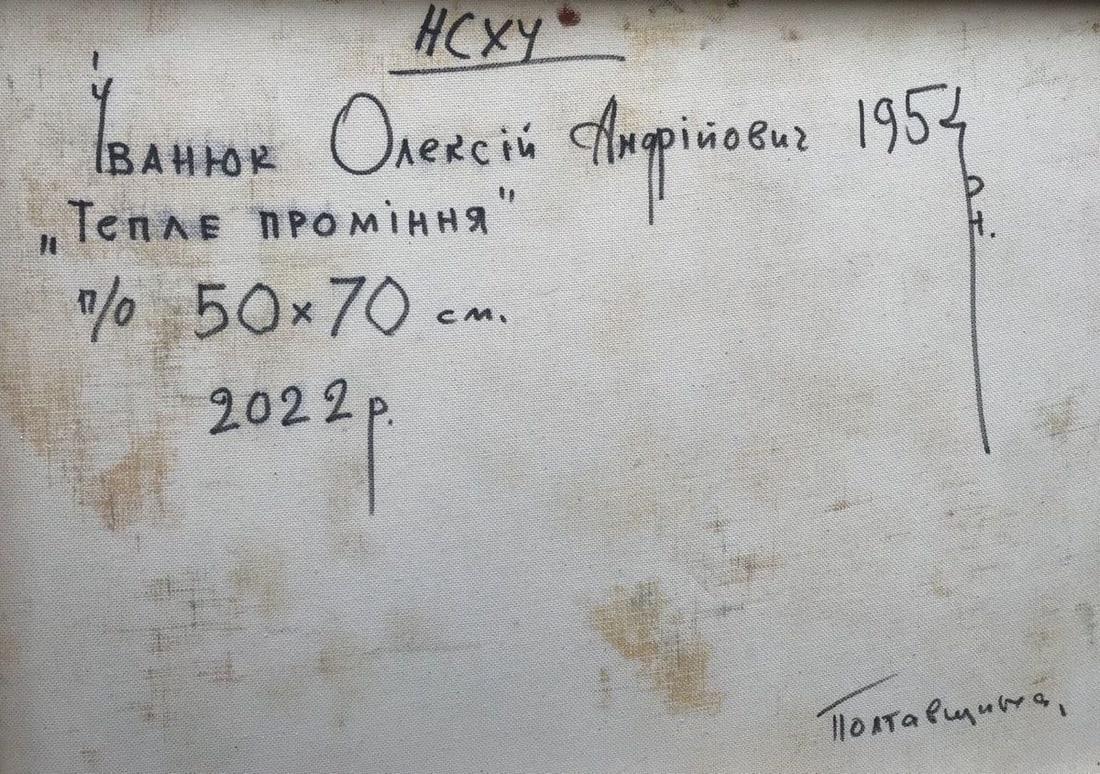 НСХУ
Іванюк Олексій Андрійович 1954 р.н.
„Тепле проміння"
п/о 50×70 см.
2022 р.
Полтавщина,